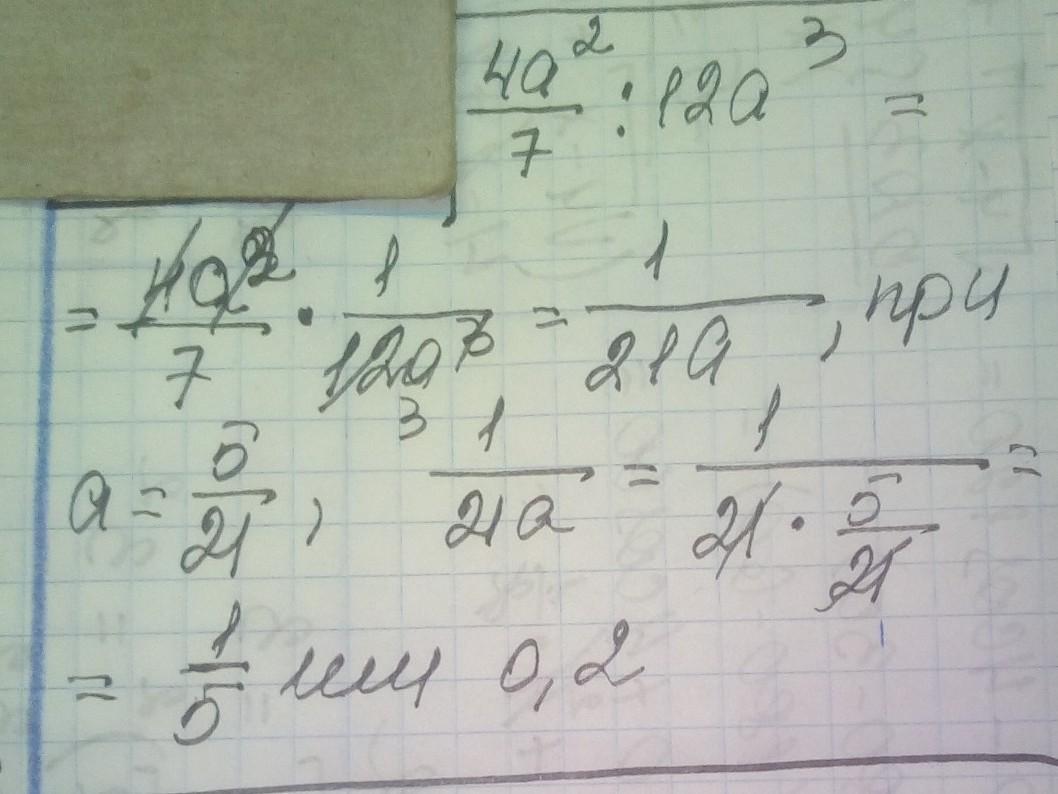 4a²/7 : 12a³ =
= 4a²/7 · 1/12a³ 3 = 1/21a , при
a = 5/21 , 1/21a = 1/(21 · 5/21) =
= 1/5 или 0,2